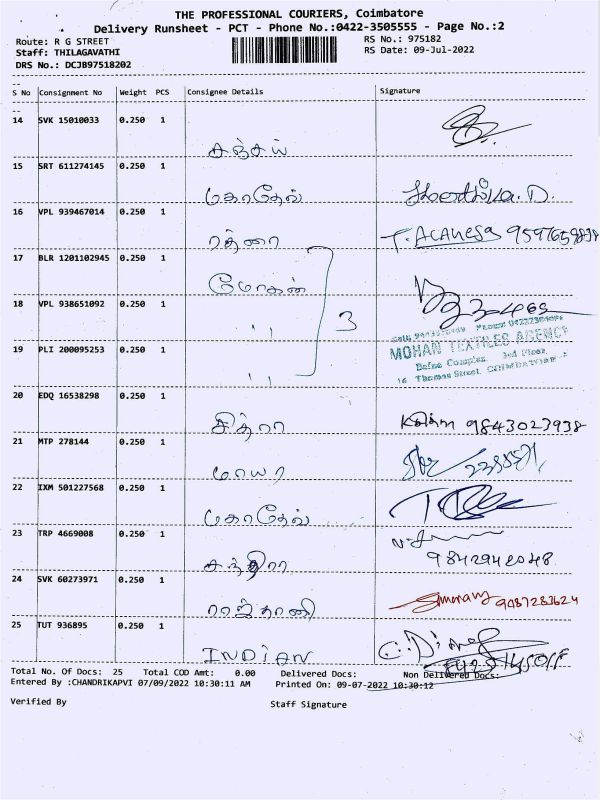 THE PROFESSIONAL COURIERS, Coimbatore
Delivery Runsheet - PCT - Phone No.:0422-3505555 - Page No.:2
Route: R G STREET
RS No.: 975182
Staff: THILAGAVATHI
RS Date: 09-Jul-2022
DRS No.: DCJB97518202
S No Consignment No Weight PCS Consignee Details Signature
14 SVK 15010033 0.250 1
சஞ்சய்
15 SRT 611274145 0.250 1
மகாதேவ்
16 VPL 939467014 0.250 1
ரத்னா
17 BLR 1201102945 0.250 1
மோகன்
18 VPL 938651092 0.250 1
,, 3
19 PLI 200095253 0.250 1
MOHAN TEXTILES AGENCY
3rd Floor,
16 Thomas Street, COIMBATORE
,,
20 EDQ 16538298 0.250 1
சித்ரா 9843023938
21 MTP 278144 0.250 1
மாயா
22 IXM 501227568 0.250 1
மகாதேவ்
23 TRP 4669008 0.250 1
சந்திரா 9842942048
24 SVK 60273971 0.250 1
ராஜ்தானி 9487283624
25 TUT 936895 0.250 1
INDIAN
Total No. Of Docs: 25 Total COD Amt: 0.00 Delivered Docs: Non Delivered Docs:
Entered By :CHANDRIKAPVI 07/09/2022 10:30:11 AM Printed On: 09-07-2022 10:30:12
Verified By Staff Signature